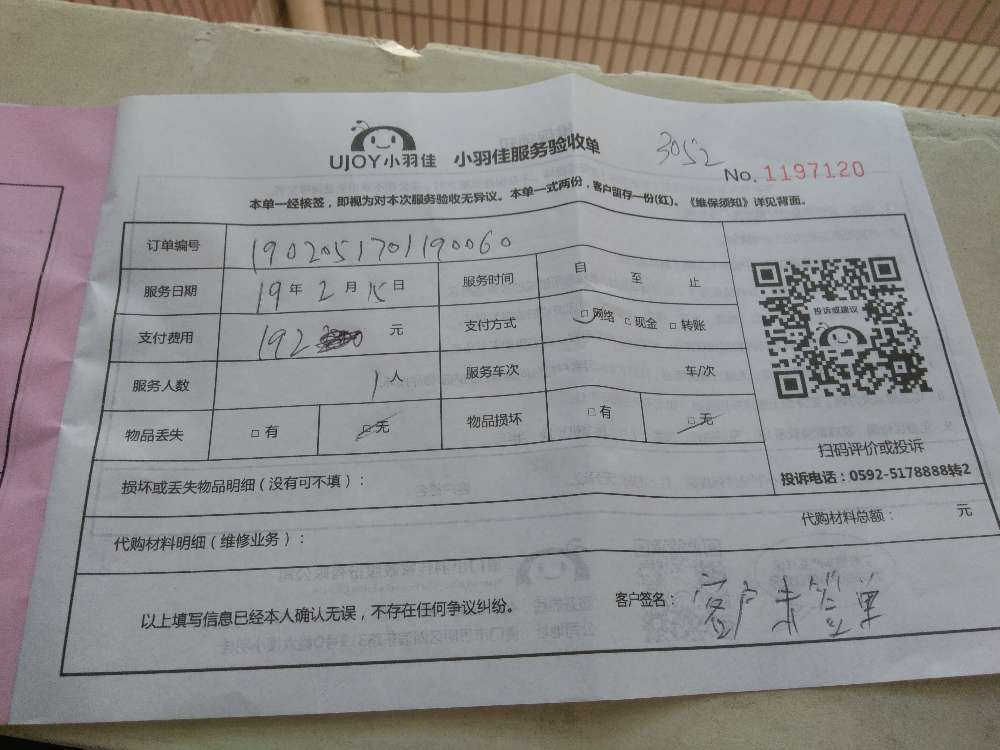 UJOY小羽佳 小羽佳服务验收单 3052
No. 1197120
本单一经核签，即视为对本次服务验收无异议。本单一式两份，客户留存一份(红)。《维保须知》详见背面。
订单编号 1902051701190060
服务日期 19年2月15日 服务时间 自 至 止
支付费用 192 元 支付方式 □网络 □现金 □转账
服务人数 1人 服务车次 车/次
物品丢失 □有 □无 物品损坏 □有 □无
投诉或建议
扫码评价或投诉
投诉电话：0592-5178888转2
损坏或丢失物品明细（没有可不填）：
代购材料明细（维修业务）： 代购材料总额： 元
以上填写信息已经本人确认无误，不存在任何争议纠纷。 客户签名：客户未签单